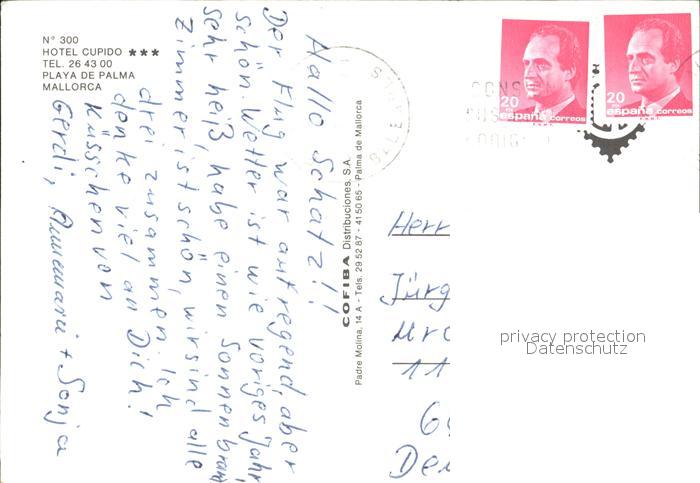 N° 300
HOTEL CUPIDO ***
TEL. 26 43 00
PLAYA DE PALMA
MALLORCA
Hallo Schatz!!
Der Flug war aufregend, aber
schön. Wetter ist wie voriges Jahr,
sehr heiß, habe einen Sonnenbrand
Zimmer ist schön, wir sind alle
drei zusammen. Ich
denke viel an Dich!
Küsschen von
Gerdi, Annemarie + Sonja
COFIBA Distribuciones, S.A.
Padre Molina, 14 A - Tels. 29 52 87 - 41 50 65 - Palma de Mallorca
20
españa correos
20
españa correos
CONS
Herr
Jürg
11
6
De
privacy protection
Datenschutz